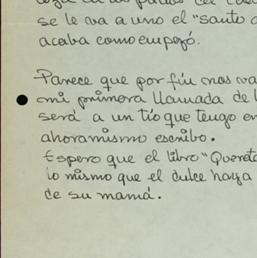 se le va a uno el "santo a
acaba como empezó.
Parece que por fin nos va
mi primera llamada de l
será a un tío que tengo en
ahoramismo escribo.
Espero que el libro "Quereta
lo mismo que el dulce haya
de su mamá.